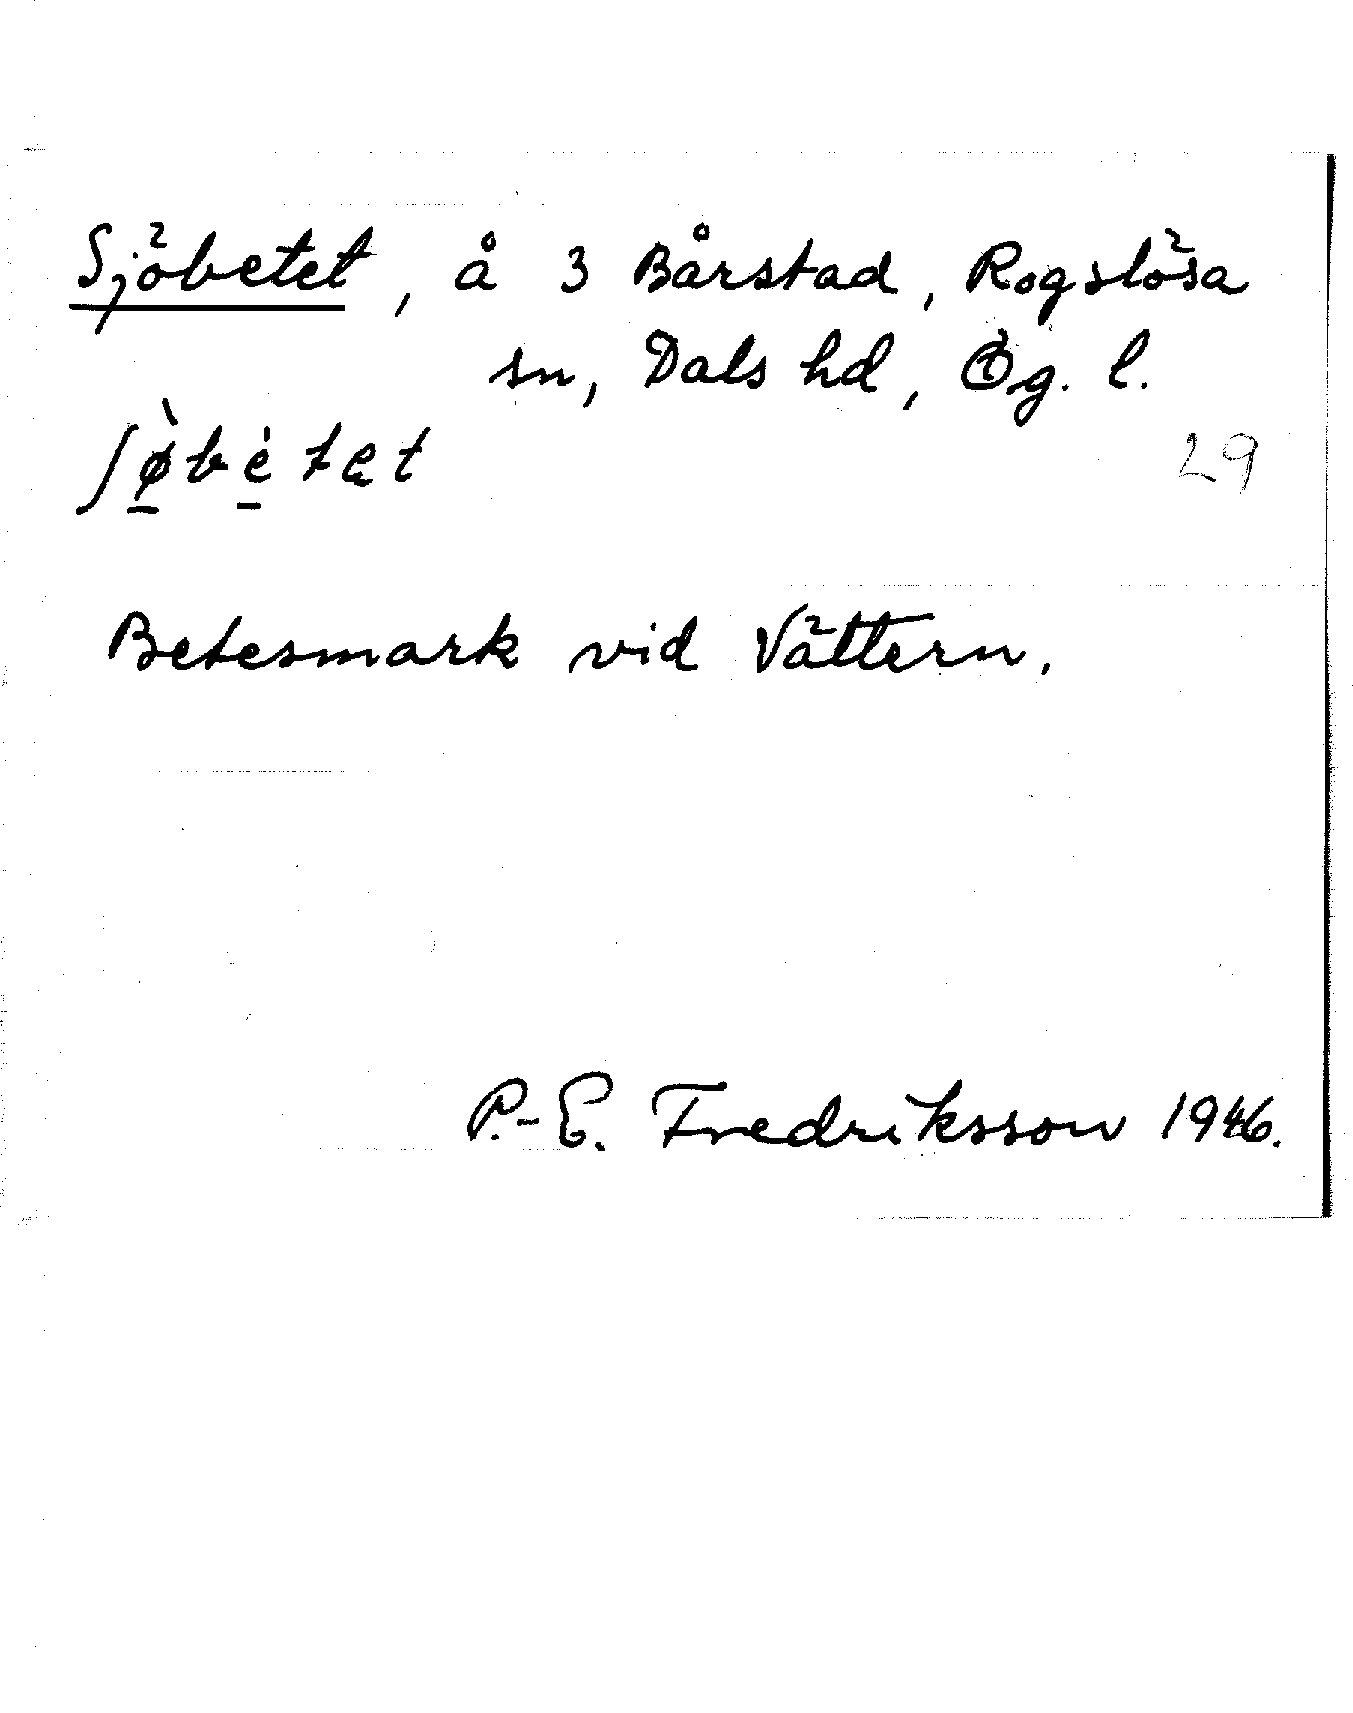 Sjöbetet, å 3 Bårstad, Rogslösa
sn, Dals hd, Ög. l.
ʃø̠̀bè̠tet
29
Betesmark vid Vättern.
P.-E. Fredriksson 1946.